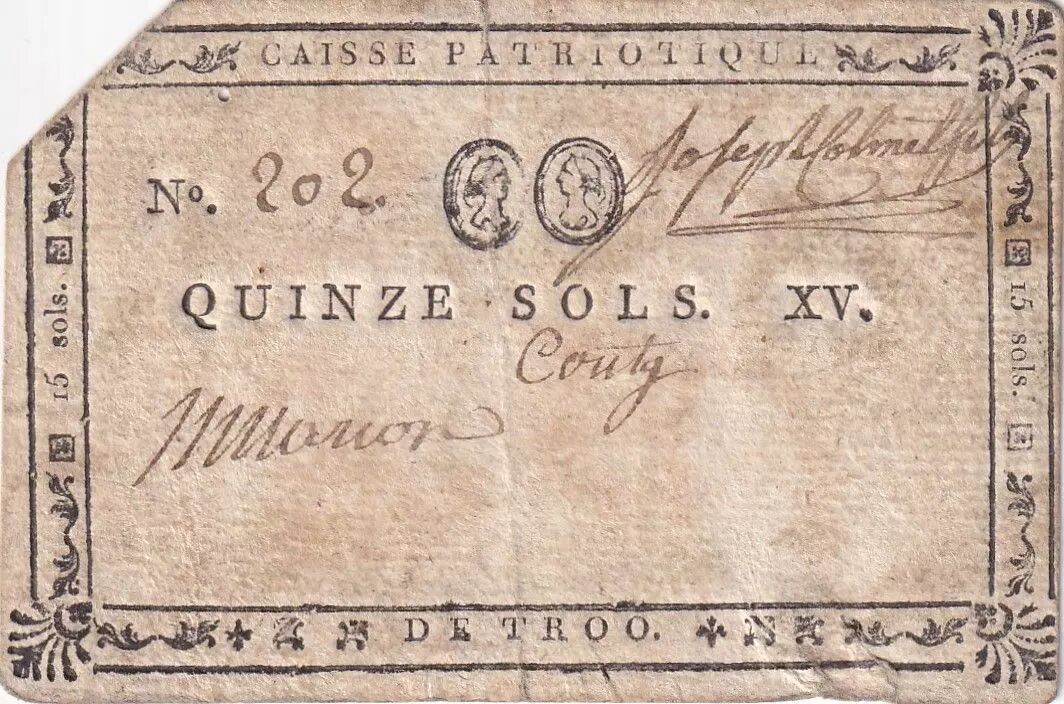 CAISSE PATRIOTIQUE
No. 202.
Joseph Colmet fils
QUINZE SOLS. XV.
Couty
Marion
15 sols.
15 sols.
DE TROO.